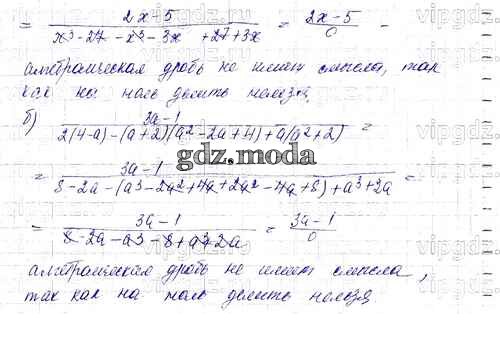 = 2x-5 / x³-27-x³-3x+27+3x = 2x-5 / 0 -
алгебраическая дробь не имеет смысла, так
как на ноль делить нельзя.
б) 3a-1 / 2(4-a)-(a+2)(a²-2a+4)+a(a²+2) =
gdz.moda
= 3a-1 / 8-2a-(a³-2a²+4a+2a²-4a+8)+a³+2a
= 3a-1 / 8-2a-a³-8+a³+2a = 3a-1 / 0
алгебраическая дробь не имеет смысла,
так как на ноль делить нельзя